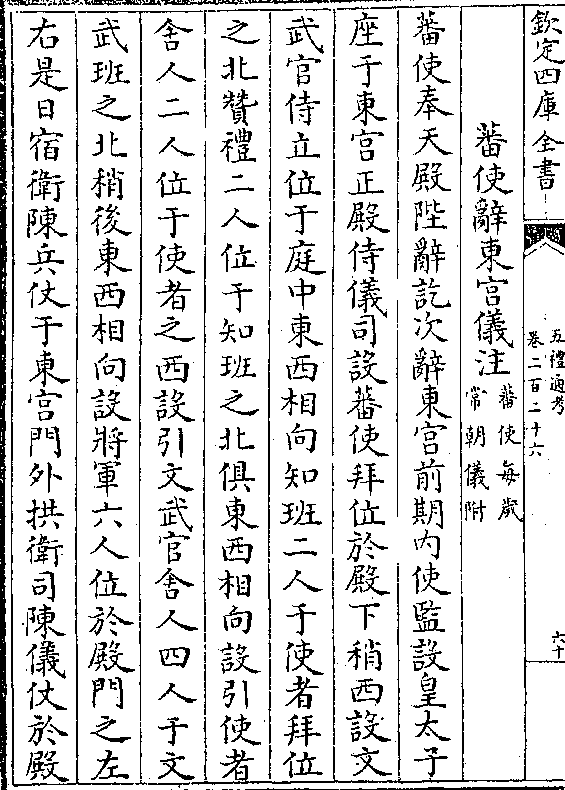 欽定四庫全書
五禮通考
卷二百二十六
六十
蕃使辭東宮儀注
蕃使每歲
常朝儀附
蕃使奉天殿陛辭訖次辭東宮前期内使監設皇太子
座于東宮正殿侍儀司設蕃使拜位於殿下稍西設文
武官侍立位于庭中東西相向知班二人于使者拜位
之北贊禮二人位于知班之北俱東西相向設引使者
舍人二人位于使者之西設引文武官舍人四人于文
武班之北稍後東西相向設將軍六人位於殿門之左
右是日宿衛陳兵仗于東宮門外拱衛司陳儀仗於殿